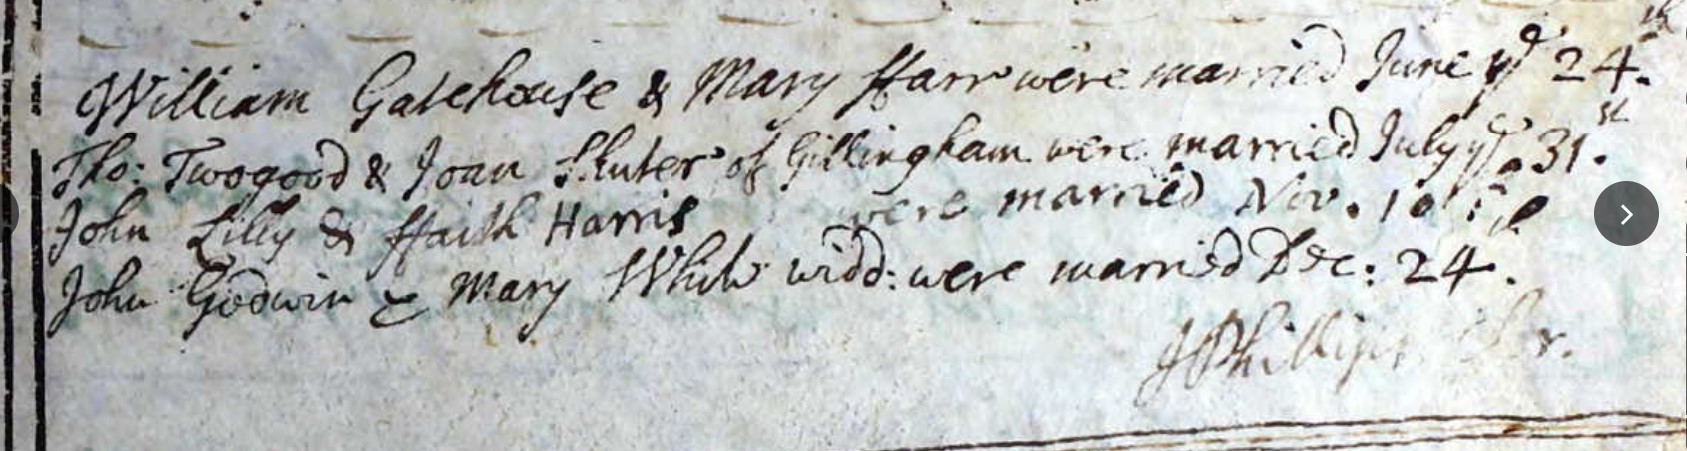 William Gatehouse & Mary ffarr were married June ye 24th.
Tho: Twogood & Joan Shuter of Gillingham were married July ye 31st.
John Lilly & ffaith Harris were married Nov. 10
John Godwin & Mary White widd: were married Dec: 24.
J Phillips